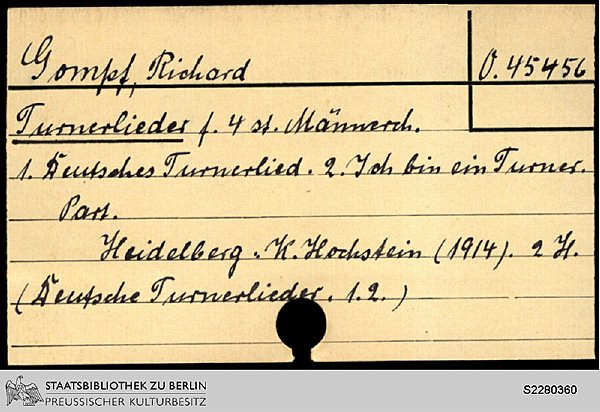 Gompf, Richard
O. 45456
Turnerlieder f. 4 st. Männerch.
1. Deutsches Turnerlied. 2. Ich bin ein Turner.
Part.
Heidelberg: K. Hochstein (1914). 2 H.
(Deutsche Turnerlieder. 1.2.)
STAATSBIBLIOTHEK ZU BERLIN
PREUSSISCHER KULTURBESITZ
S2280360